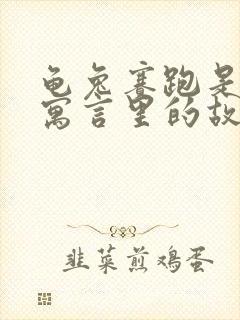 龟兔赛跑是
寓言里的故
韭菜煎鸡蛋